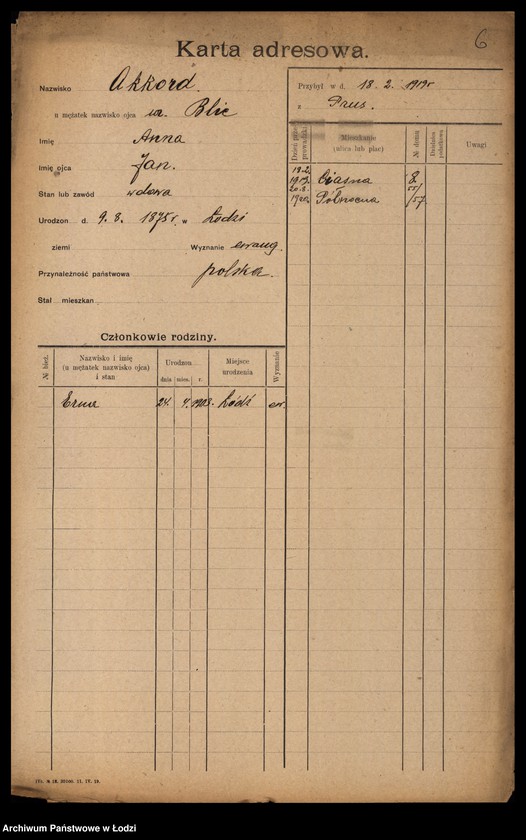 6
Karta adresowa.
Nazwisko Akkord.
u mężatek nazwisko ojca ur. Blic
Imię Anna
imię ojca Jan.
Stan lub zawód wdowa
Urodzon d. 9. 8. 1875 r. w Łodzi
ziemi Wyznanie ewang
Przynależność państwowa polska.
Stał mieszkan
Przybył w d. 18. 2. 1919 r
z Prus.
Dzień przeprowadzki
Mieszkanie
(ulica lub plac)
№ domu
Dzielnica
policyjna
Uwagi
18.2.
1919. Ciasna 8.
20.8. 55/
1920. Północna /57
Członkowie rodziny.
№ bież.
Nazwisko i imię
(u mężatek nazwisko ojca)
i stan
Urodzon
dnia mies. r.
Miejsce
urodzenia
Wyznanie
Erna 24. 4. 1903. Łódź ew.
Archiwum Państwowe w Łodzi